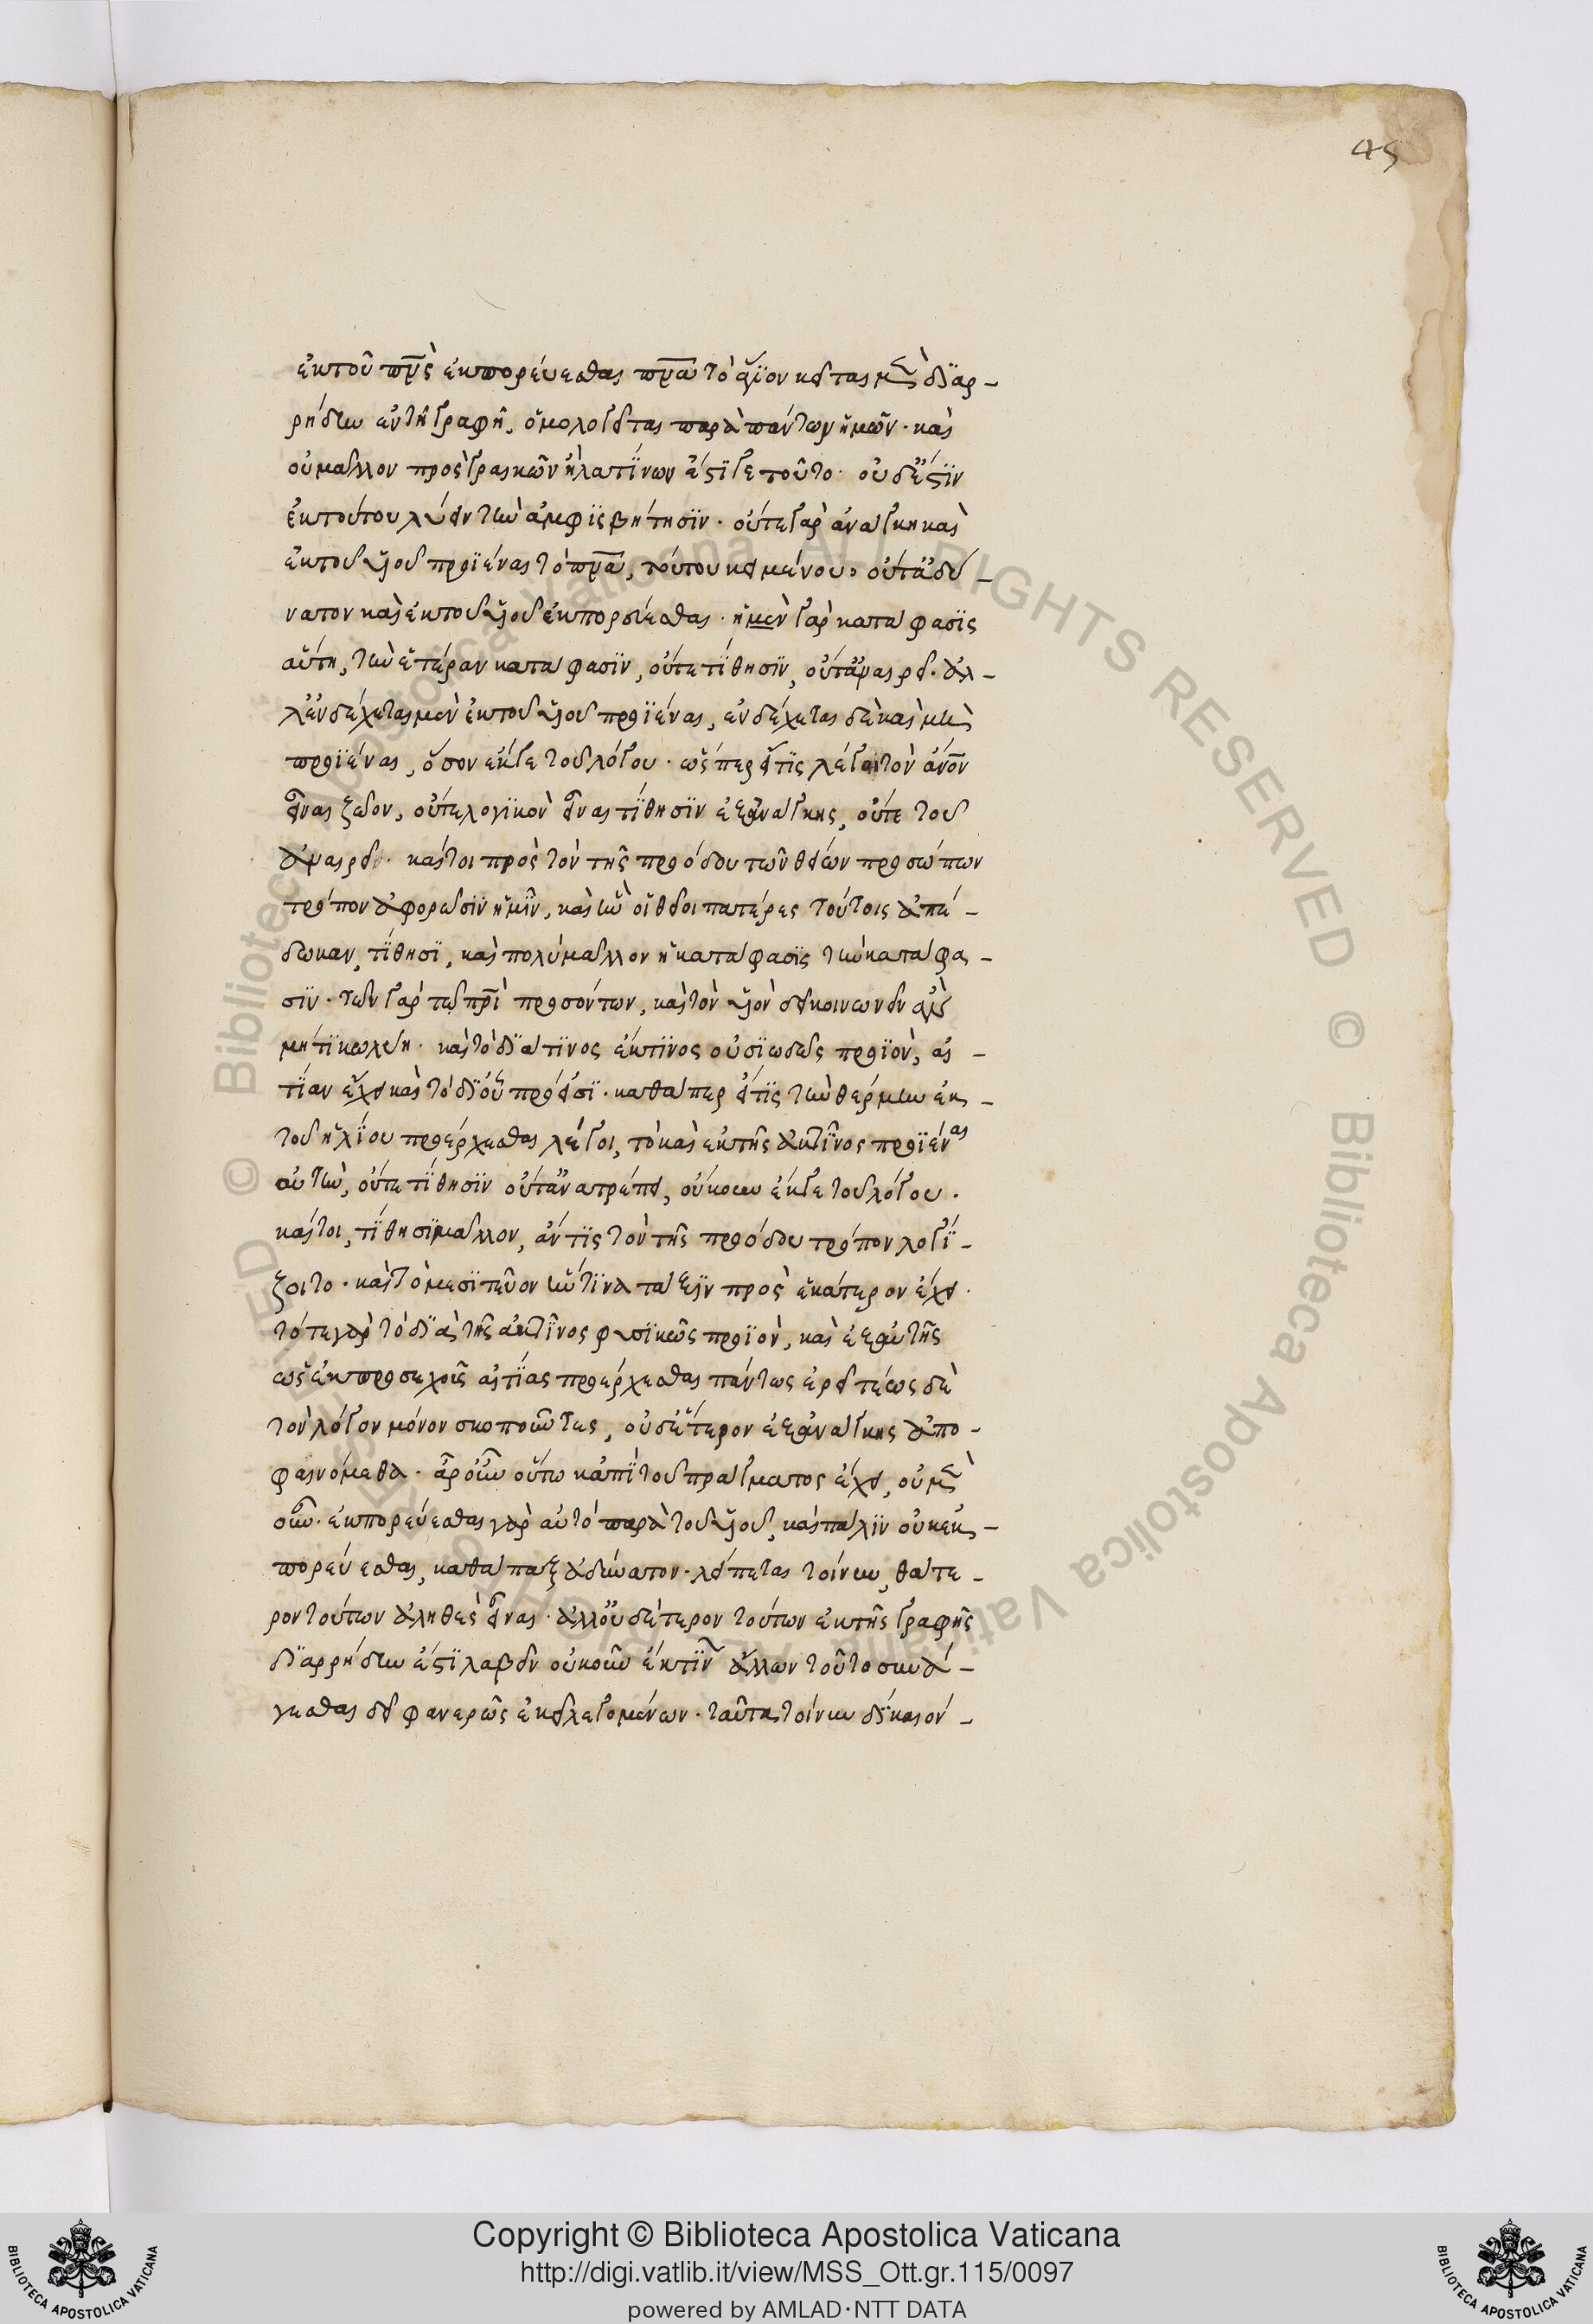 45
ἐκ τοῦ πρς ἐκπορεύεσθαι πνα τὸ ἅγιον κεῖται μὲν διαρ-
ρήδην ἐν τῇ γραφῇ, ὁμολογεῖται παρὰ πάντων ἡμῶν. καὶ
οὐ μᾶλλον πρὸς γραικῶν ἢ λατίνων ἐστί γε τοῦτο. οὐδ' ἔστιν
ἐκ τούτου λύειν τὴν ἀμφισβήτησιν. οὔτε γὰρ ἀνάγκη καὶ
ἐκ τοῦ υἱοῦ προϊέναι τὸ πνα, τούτου κειμένου. οὔτ' ἀδύ-
νατον καὶ ἐκ τοῦ υἱοῦ ἐκπορεύεσθαι. ἡ μὲν γὰρ κατάφασις
αὕτη, τὴν ἑτέραν κατάφασιν, οὔτε τίθησιν, οὔτ' ἀναιρεῖ. ἀλ-
λ' ἐνδέχεται μὲν ἐκ τοῦ υἱοῦ προϊέναι, ἐνδέχεται δὲ καὶ μὴ
προϊέναι, ὅσον ἔκ γε τοῦ λόγου. ὥσπερ εἴ τις λέγοι τὸν ἄνον
εἶναι ζῶον, οὔτε λογικὸν εἶναι τίθησιν ἐξ ἀνάγκης, οὔτε τοῦτ'
ἀναιρεῖ. καίτοι πρὸς τὸν τῆς προόδου τῶν θείων προσώπων
τρόπον ἀφορῶσιν ἡμῖν, καὶ ἣν οἱ θεῖοι πατέρες τούτοις ἀπέ-
δωκαν, τίθησι, καὶ πολὺ μᾶλλον ἡ κατάφασις τὴν κατάφα-
σιν. τῶν γὰρ τῷ πρι προσόντων, καὶ τὸν υἱὸν κοινωνεῖν
μή τι κωλύῃ. καὶ τὸ διά τινος ἔκ τινος οὐσιωδῶς προϊὸν, αἰ-
τίαν ἔχει καὶ τὸ δι' οὗ πρόεισι. καθάπερ εἴ τις τὴν θέρμην ἐκ
τοῦ ἡλίου προέρχεσθαι λέγοι, τὸ καὶ ἐκ τῆς ἀκτῖνος προϊέναι
αὐτὴν, οὔτε τίθησιν οὔτ' ἀνατρέπει, οὔκουν ἔκ γε τοῦ λόγου.
καίτοι, τίθησι μᾶλλον, ἄν τις τὸν τῆς προόδου τρόπον λογί-
ζοιτο. καὶ τὸ μεσιτεῦον ἥντινα τάξιν πρὸς ἑκάτερον ἔχει.
τό τε γὰρ τὸ διὰ τῆς ἀκτῖνος φυσικῶς προϊὸν, καὶ ἐξ αὐτῆς
ὡς ἐκ προσεχοῦς αἰτίας προέρχεσθαι πάντως ἐρεῖ τέως δὲ
τὸν λόγον μόνον σκοποῦντες, οὐδέτερον ἐξ ἀνάγκης ἀπο-
φαινόμεθα. ἆρ' οὖν οὕτω κἀπὶ τοῦ πράγματος ἔχει, οὐ μὲν
οὖν. ἐκπορεύεσθαι γὰρ αὐτὸ παρὰ τοῦ υἱοῦ, καὶ πάλιν οὐκ ἐκ-
πορεύεσθαι, καθάπαξ ἀδύνατον. λείπεται τοίνυν, θάτε-
ρον τούτων ἀληθὲς εἶναι. ἀλλ' οὐδέτερον τούτων ἐκ τῆς γραφῆς
διαρρήδην ἐστὶ λαβεῖν οὐκοῦν ἔκ τινῶν ἄλλων τοῦτο συνά-
γεσθαι δεῖ φανερῶς ἐκεῖ λεγομένων. ταῦτα τοίνυν δίκαιον